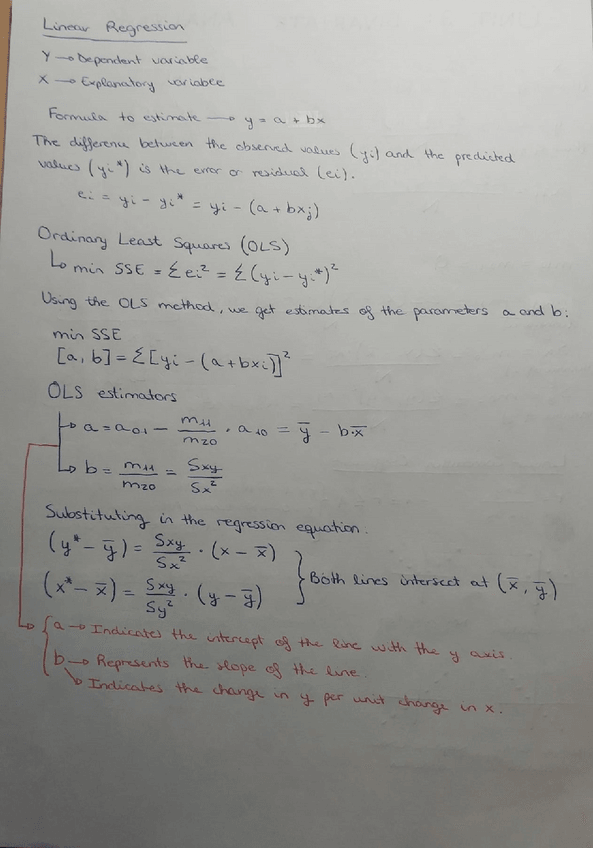 Linear Regression
Y → Dependent variable
X → Explanatory variable
Formula to estimate → y = a + bx
The difference between the observed values (yi) and the predicted
values (yi*) is the error or residual (ei).
ei = yi - yi* = yi - (a + bxj)
Ordinary Least Squares (OLS)
↳ min SSE = Σei² = Σ(yi - yi*)²
Using the OLS method, we get estimates of the parameters a and b:
min SSE
[a, b] = Σ[yi - (a + bxi)]²
OLS estimators
↳ a = a01 - m11/m20 · a10 = y̅ - b·x̅
↳ b = m11/m20 = Sxy/Sx²
Substituting in the regression equation.
(y* - y̅) = Sxy/Sx² · (x - x̅)
(x* - x̅) = Sxy/Sy² · (y - y̅)
} Both lines intersect at (x̅, y̅)
{ a → Indicates the intercept of the line with the y axis.
b → Represents the slope of the line.
↳ Indicates the change in y per unit change in x.